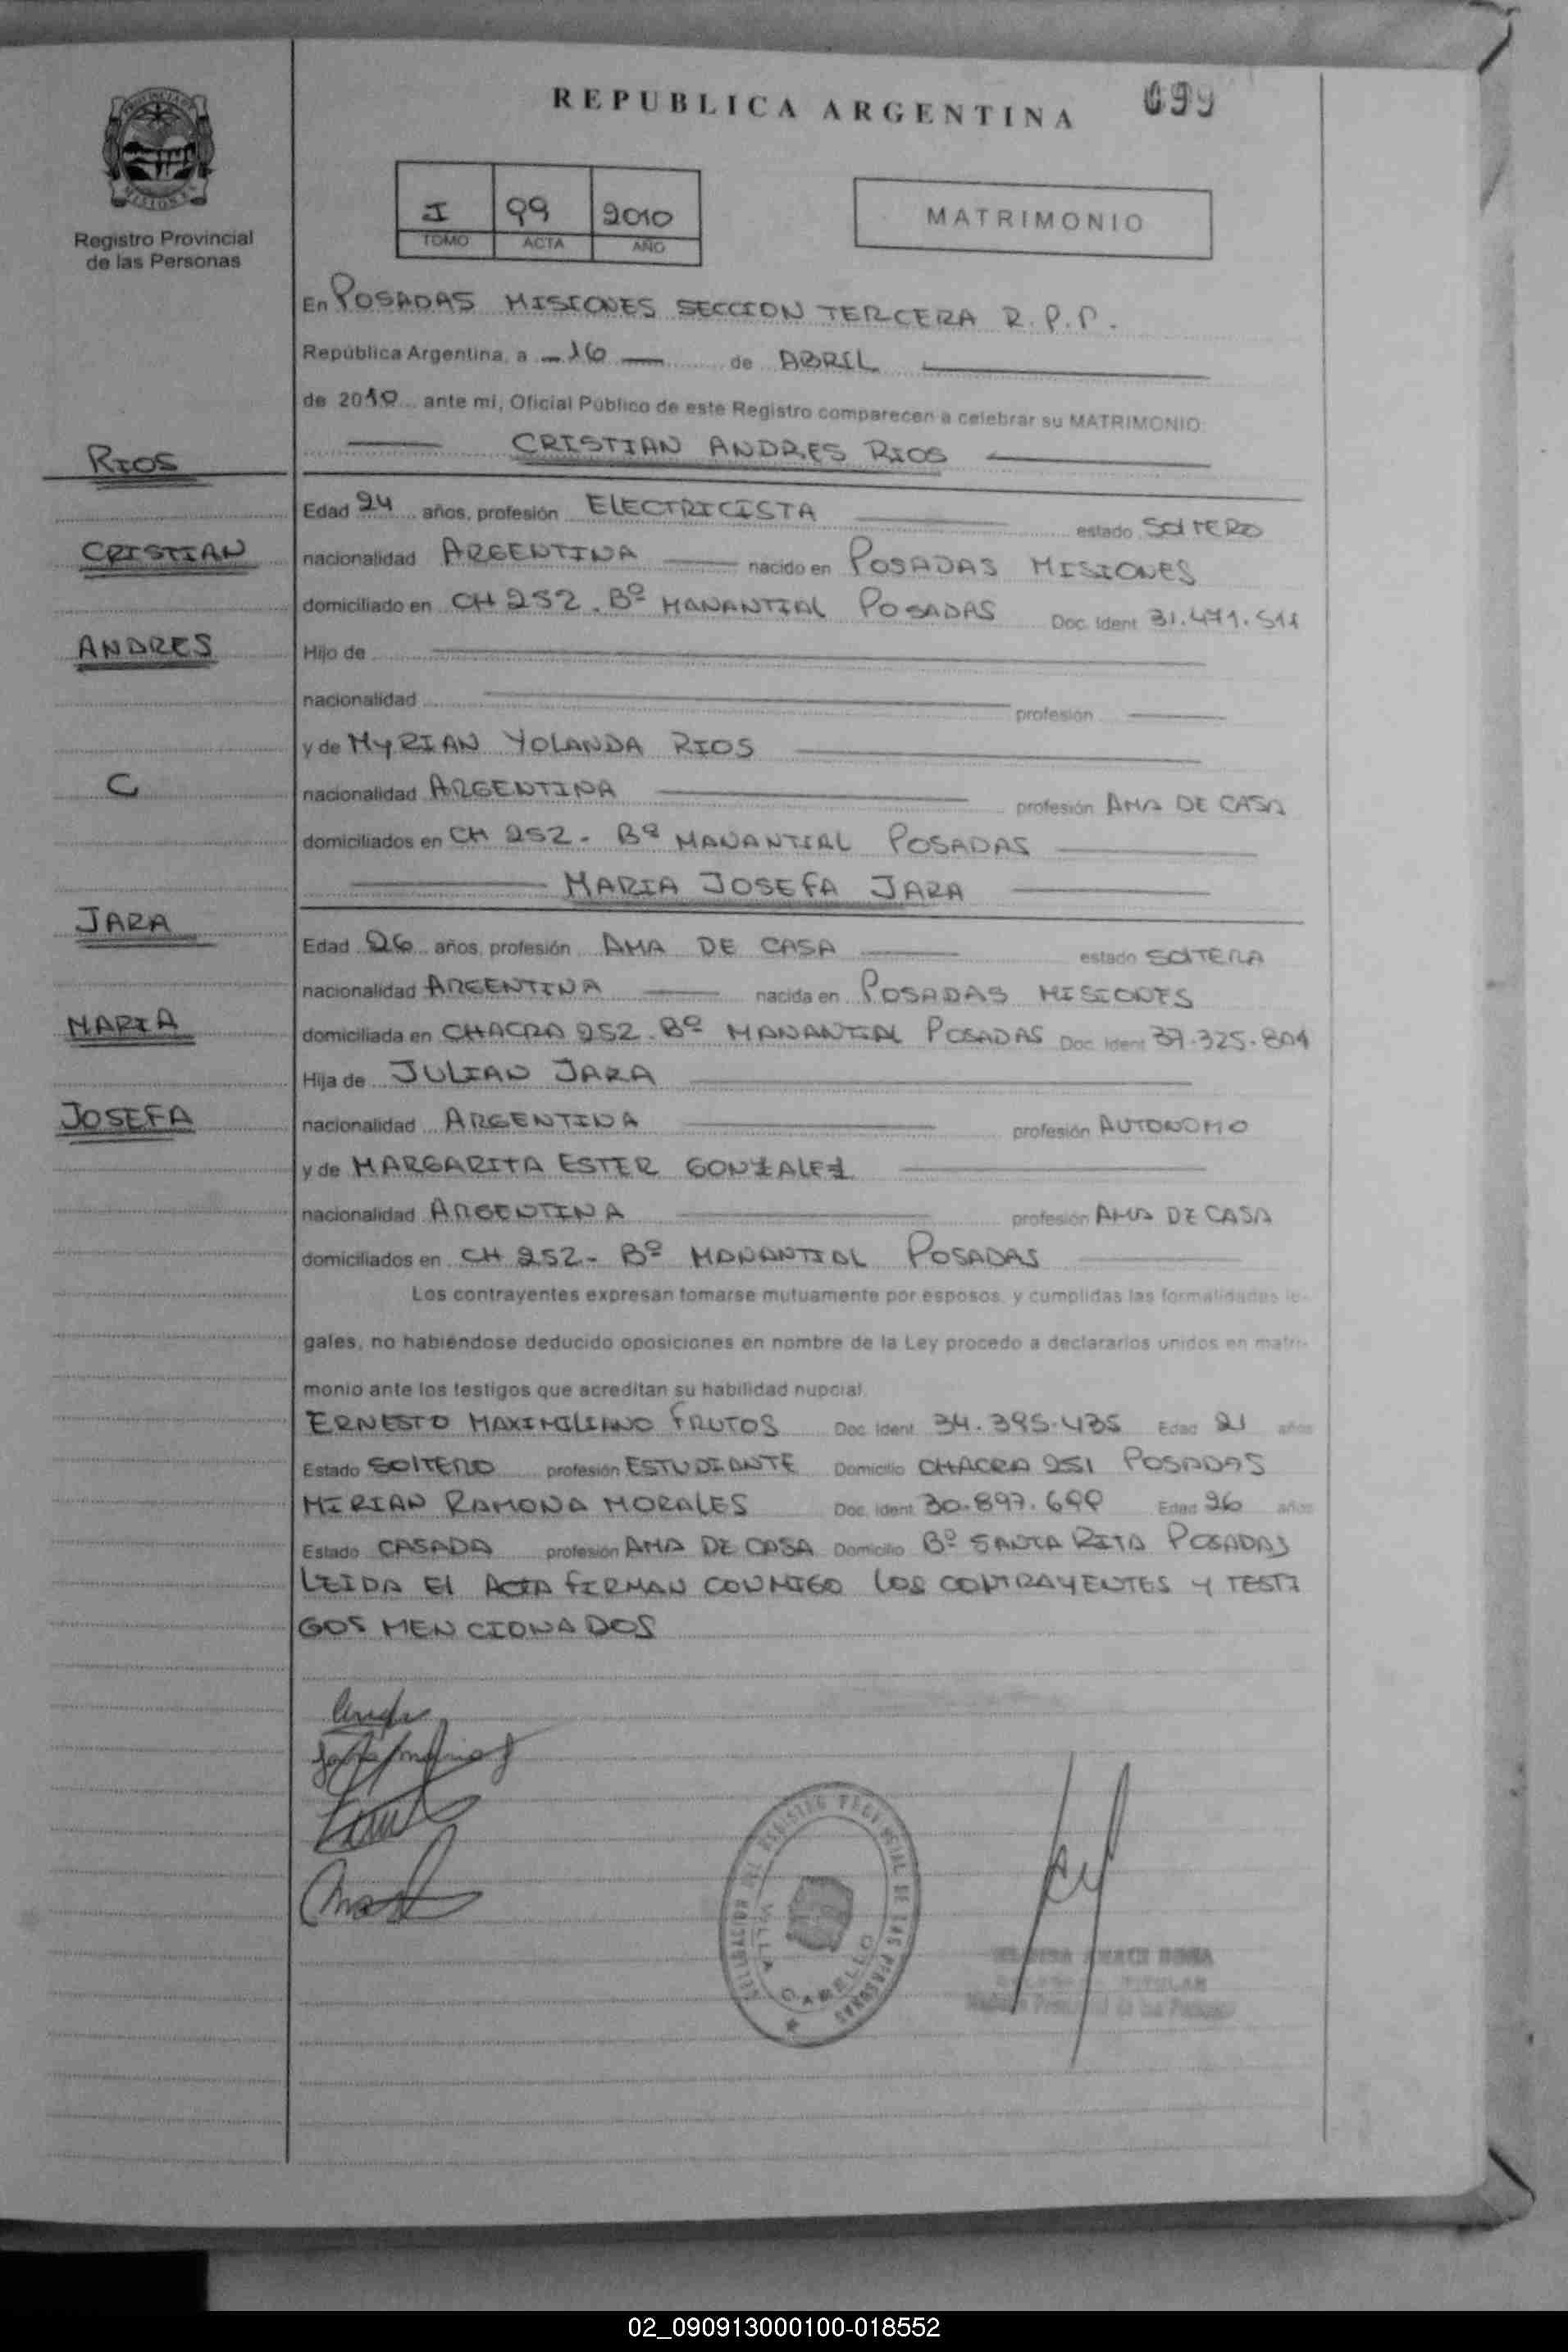 REPUBLICA ARGENTINA 099
Registro Provincial
de las Personas
I 99 2010
TOMO ACTA AÑO
MATRIMONIO
En POSADAS MISIONES SECCION TERCERA R.P.P.
República Argentina, a -16- de ABRIL
de 2010 ante mí, Oficial Público de este Registro comparecen a celebrar su MATRIMONIO:
RIOS CRISTIAN ANDRES RIOS
Edad 24 años, profesión ELECTRICISTA estado SOLTERO
CRISTIAN nacionalidad ARGENTINA nacido en POSADAS MISIONES
domiciliado en CH 252. Bº MANANTIAL POSADAS Doc. Ident 31.471.511
ANDRES Hijo de
nacionalidad profesión
y de MYRIAN YOLANDA RIOS
C nacionalidad ARGENTINA profesión AMA DE CASA
domiciliados en CH 252- Bº MANANTIAL POSADAS
MARIA JOSEFA JARA
JARA
Edad 26 años, profesión AMA DE CASA estado SOLTERA
nacionalidad ARGENTINA nacida en POSADAS MISIONES
MARIA domiciliada en CHACRA 252. Bº MANANTIAL POSADAS Doc. Ident 37.325.801
Hija de JULIAN JARA
JOSEFA nacionalidad ARGENTINA profesión AUTONOMO
y de MARGARITA ESTER GONZALEZ
nacionalidad ARGENTINA profesión AMA DE CASA
domiciliados en CH 252- Bº MANANTIAL POSADAS
Los contrayentes expresan tomarse mutuamente por esposos, y cumplidas las formalidades le-
gales, no habiéndose deducido oposiciones en nombre de la Ley procedo a declararlos unidos en matri-
monio ante los testigos que acreditan su habilidad nupcial.
ERNESTO MAXIMILIANO FRUTOS Doc. Ident. 34.395.435 Edad 21 años
Estado SOLTERO profesión ESTUDIANTE Domicilio CHACRA 251 POSADAS
MIRIAN RAMONA MORALES Doc. Ident. 30.897.699 Edad 26 años
Estado CASADA profesión AMA DE CASA Domicilio Bº SANTA RITA POSADAS
LEIDA El ACTA FIRMAN CONMIGO LOS CONTRAYENTES Y TESTI
GOS MENCIONADOS
REGISTRO PROVINCIAL DE LAS PERSONAS
VILLA CABELLO
TITULAR
02_090913000100-018552